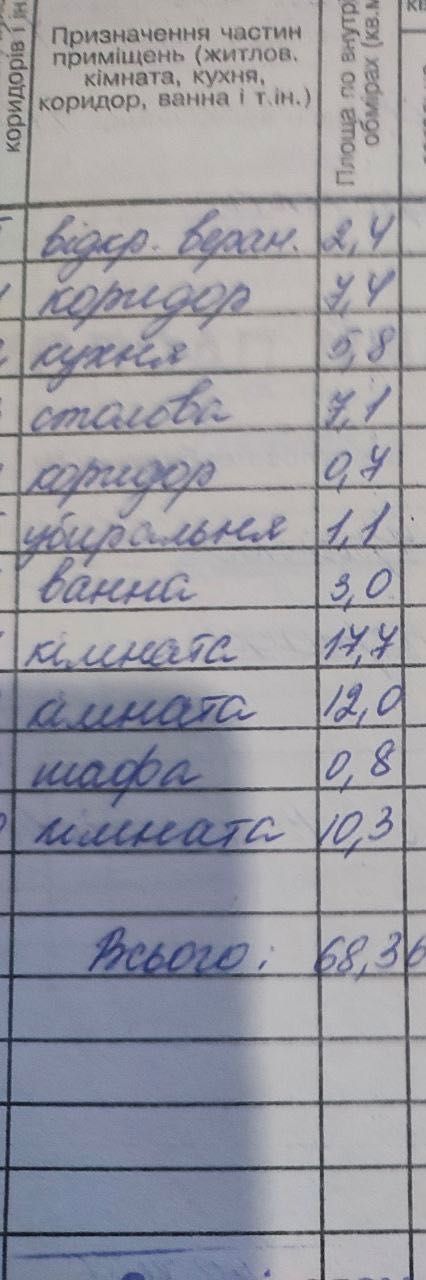 коридорів і ін
Призначення частин
приміщень (житлов.
кімната, кухня,
коридор, ванна і т.ін.)
Площа по внутр
обмірах (кв.м
відкр. веран. 2,4
коридор 7,4
кухня 5,8
столова 7,1
коридор 0,7
убиральня 1,1
ванна 3,0
кімната 17,7
кімната 12,0
шафа 0,8
кімната 10,3
Всього: 68,3